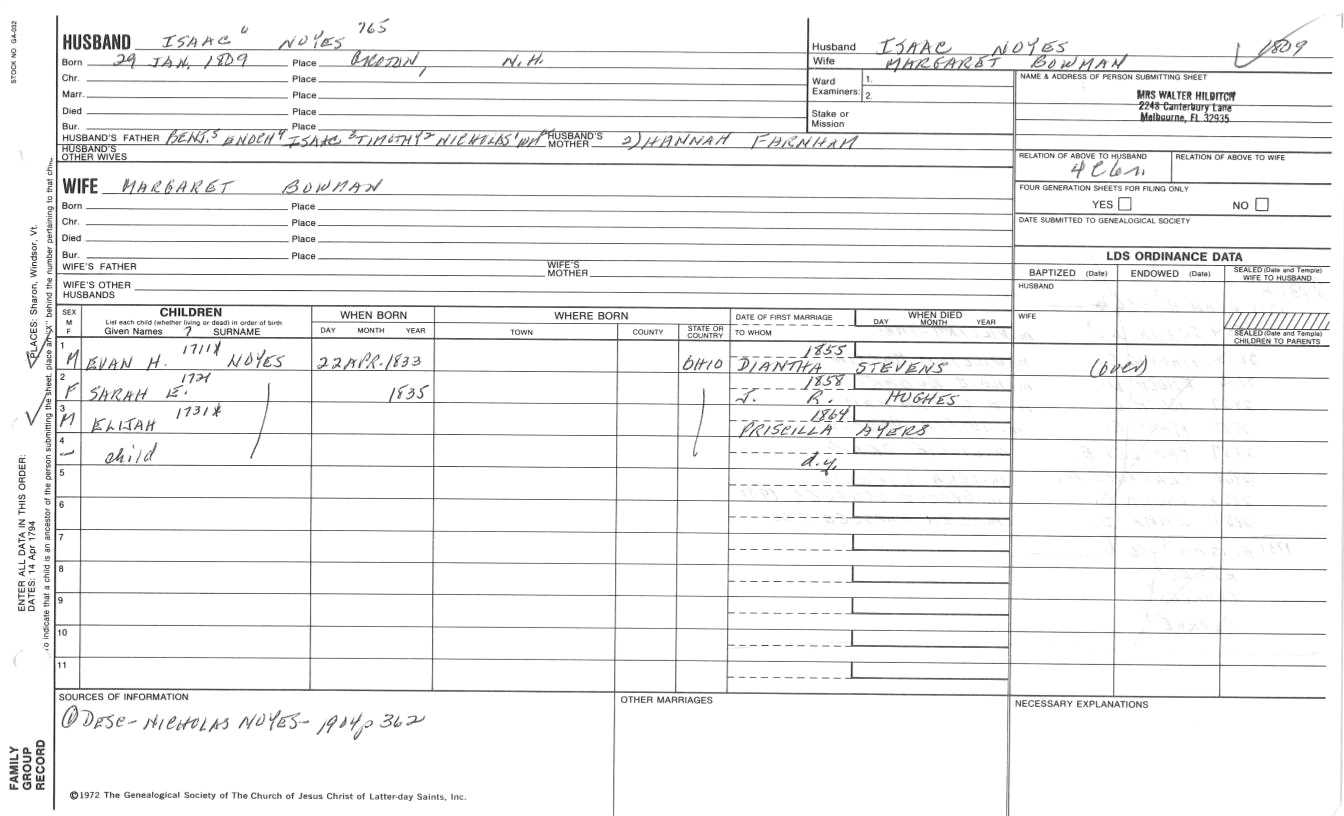 STOCK NO. GA-032
HUSBAND ISAAC 6 NOYES 765
Born 29 JAN. 1809 Place GROTON, N.H.
Chr. Place
Marr. Place
Died Place
Bur. Place
HUSBAND'S FATHER BENJ.5 ENOCH4 ISAAC 3 TIMOTHY2 NICHOLAS1 HUSBAND'S MOTHER 2) HANNAH FARNHAM
HUSBAND'S OTHER WIVES
Husband ISAAC NOYES 1809
Wife MARGARET BOWMAN
Ward Examiners: 1. 2.
Stake or Mission
NAME & ADDRESS OF PERSON SUBMITTING SHEET
MRS WALTER HILDITCH
2248 Canterbury Lane
Melbourne, FL 32935
RELATION OF ABOVE TO HUSBAND RELATION OF ABOVE TO WIFE
FOUR GENERATION SHEETS FOR FILING ONLY
YES NO
DATE SUBMITTED TO GENEALOGICAL SOCIETY
WIFE MARGARET BOWMAN
Born Place
Chr. Place
Died Place
Bur. Place
WIFE'S FATHER WIFE'S MOTHER
WIFE'S OTHER HUSBANDS
LDS ORDINANCE DATA
BAPTIZED (Date) ENDOWED (Date) SEALED (Date and Temple) WIFE TO HUSBAND
HUSBAND
WIFE
SEALED (Date and Temple) CHILDREN TO PARENTS
SEX M F
CHILDREN
List each child (whether living or dead) in order of birth
Given Names ? SURNAME
WHEN BORN
DAY MONTH YEAR
WHERE BORN
TOWN COUNTY STATE OR COUNTRY
DATE OF FIRST MARRIAGE
TO WHOM
WHEN DIED
DAY MONTH YEAR
1 M EVAN H. 1711X NOYES 22 APR. 1833 OHIO 1855 DIANTHA STEVENS (over)
2 F SARAH E. 1721 1835 1858 J. R. HUGHES
3 M ELIJAH 1731X 1864 PRISCILLA AYERS
4 – child d.y.
5
6
7
8
9
10
11
SOURCES OF INFORMATION
① DESC- NICHOLAS NOYES- 1904 p 362
OTHER MARRIAGES
NECESSARY EXPLANATIONS
©1972 The Genealogical Society of The Church of Jesus Christ of Latter-day Saints, Inc.
FAMILY GROUP RECORD
ENTER ALL DATA IN THIS ORDER:
DATES: 14 Apr 1794
PLACES: Sharon, Windsor, Vt.
To indicate that a child is an ancestor of the person submitting the sheet, place an "X" behind the number pertaining to that